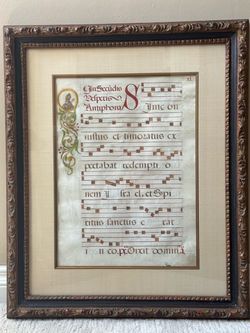 In Secūdis
Vesperis
Antiphona
Sime on
iustus et timoratus ex
pectabat redempti o
nem Isra el, et Spi
ritus sanctus e rat
in eo. ps. Dixit